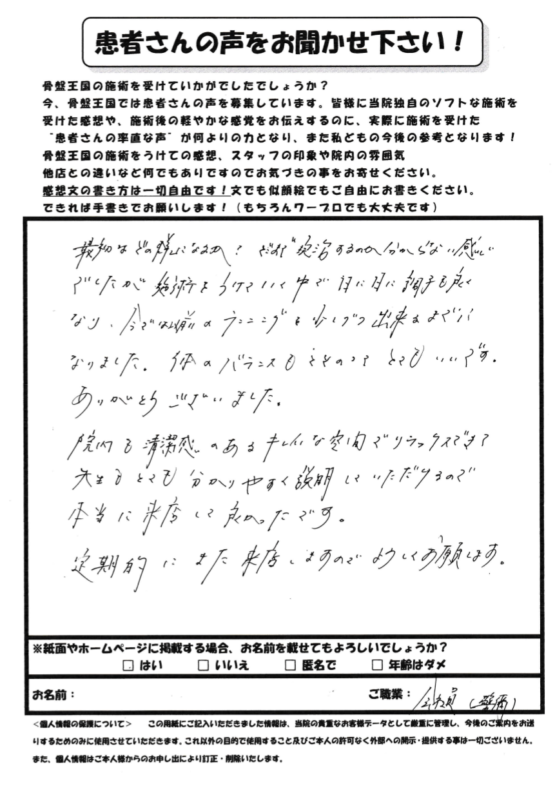 患者さんの声をお聞かせ下さい！
骨盤王国の施術を受けていかがでしたでしょうか？
今、骨盤王国では患者さんの声を募集しています。皆様に当院独自のソフトな施術を
受けた感想や、施術後の軽やかな感覚をお伝えするのに、実際に施術を受けた
"患者さんの率直な声"が何よりの力となり、また私どもの今後の参考となります！
骨盤王国の施術をうけての感想、スタッフの印象や院内の雰囲気
他店との違いなど何でもありですのでお気づきの事をお寄せください。
感想文の書き方は一切自由です！文でも似顔絵でもご自由にお書きください。
できれば手書きでお願いします！（もちろんワープロでも大丈夫です）
最初はどの様になるか！ するのか分からない感じ
でしたが施術をうけていく中で日に日に調子も良く
なり、今では以前のランニングも少しずつ出来るまでに
なりました。体のバランスもととのってとてもいいです。
ありがとうございました。
院内も清潔感のあるキレイな空間でリラックスできて
先生もとても分かりやすく説明していただけるので
本当に来店して良かったです。
定期的にまた来店しますのでよろしくお願します。
※紙面やホームページに掲載する場合、お名前を載せてもよろしいでしょうか？
□ はい □ いいえ □ 匿名で □ 年齢はダメ
お名前： ご職業：会社員
＜個人情報の保護について＞ この用紙にご記入いただきました情報は、当院の貴重なお客様データとして厳重に管理し、今後のご案内をお送
りするためのみに使用させていただきます。これ以外の目的で使用すること及びご本人の許可なく外部への開示・提供する事は一切ございません。
また、個人情報はご本人様からのお申し出により訂正・削除いたします。